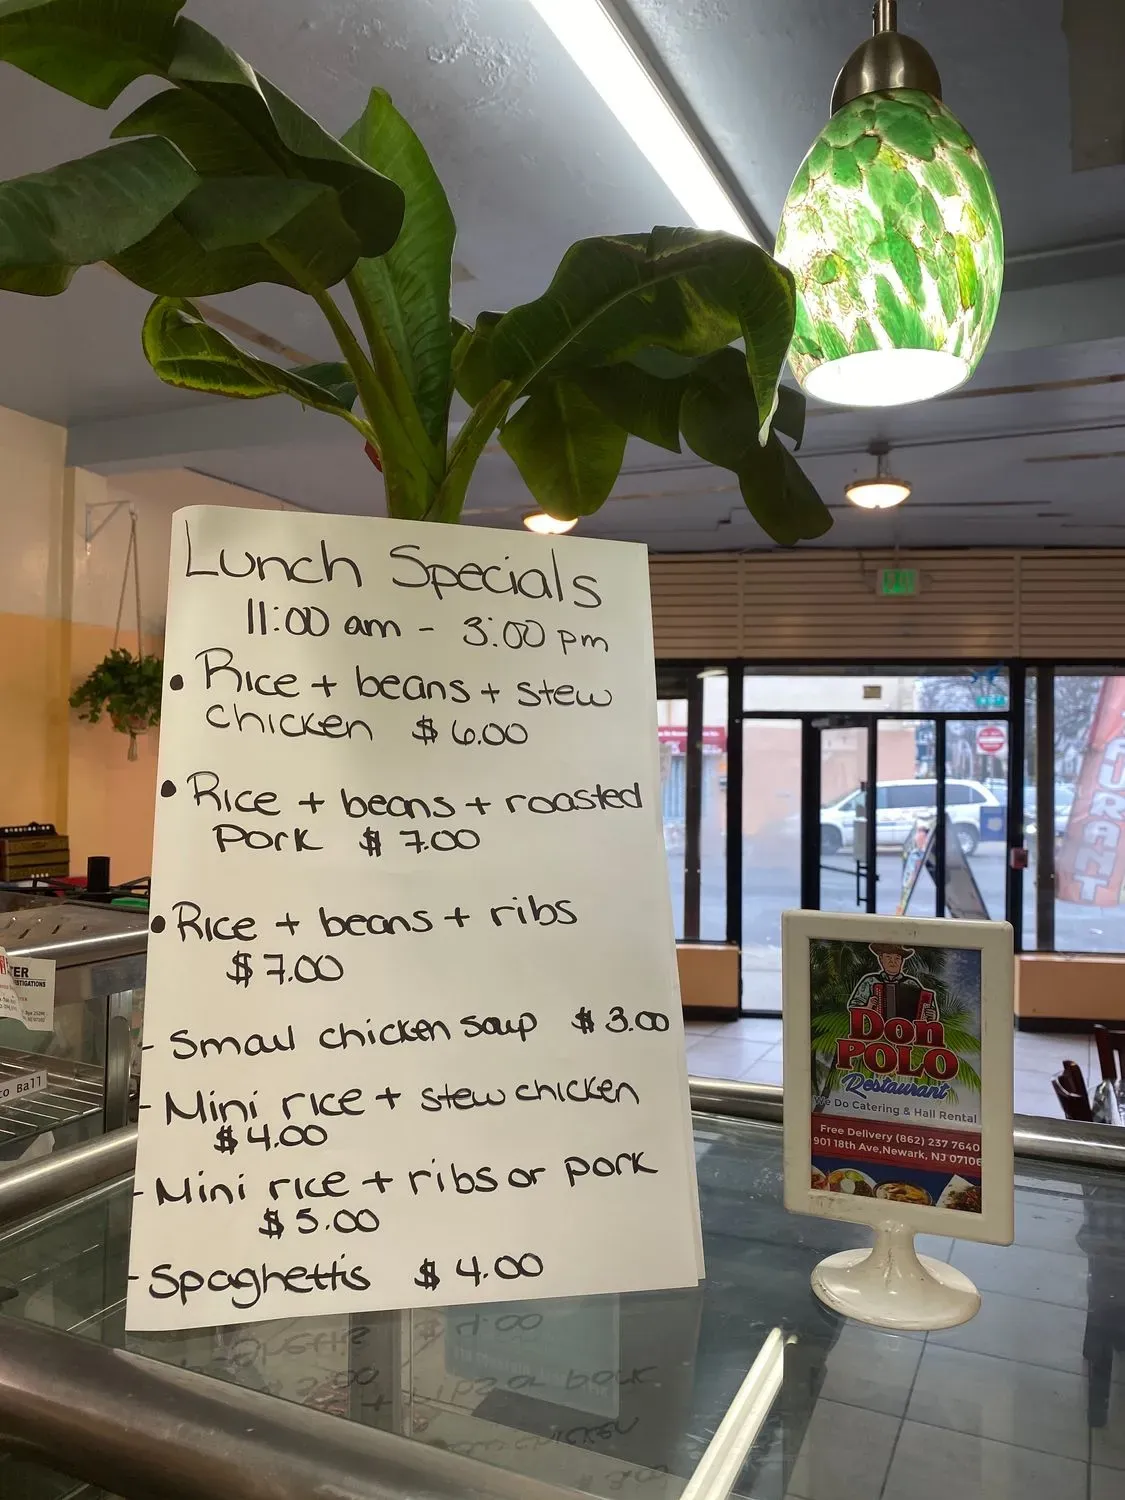 Lunch Specials
11:00 am - 3:00 pm
• Rice + beans + stew
chicken $6.00
• Rice + beans + roasted
Pork $7.00
• Rice + beans + ribs
$7.00
- Small chicken soup $3.00
- Mini rice + stew chicken
$4.00
- Mini rice + ribs or pork
$5.00
- Spaghettis $4.00
Don
POLO
Restaurant
We Do Catering & Hall Rental
Free Delivery (862) 237 7640
901 18th Ave,Newark, NJ 07106
Ball